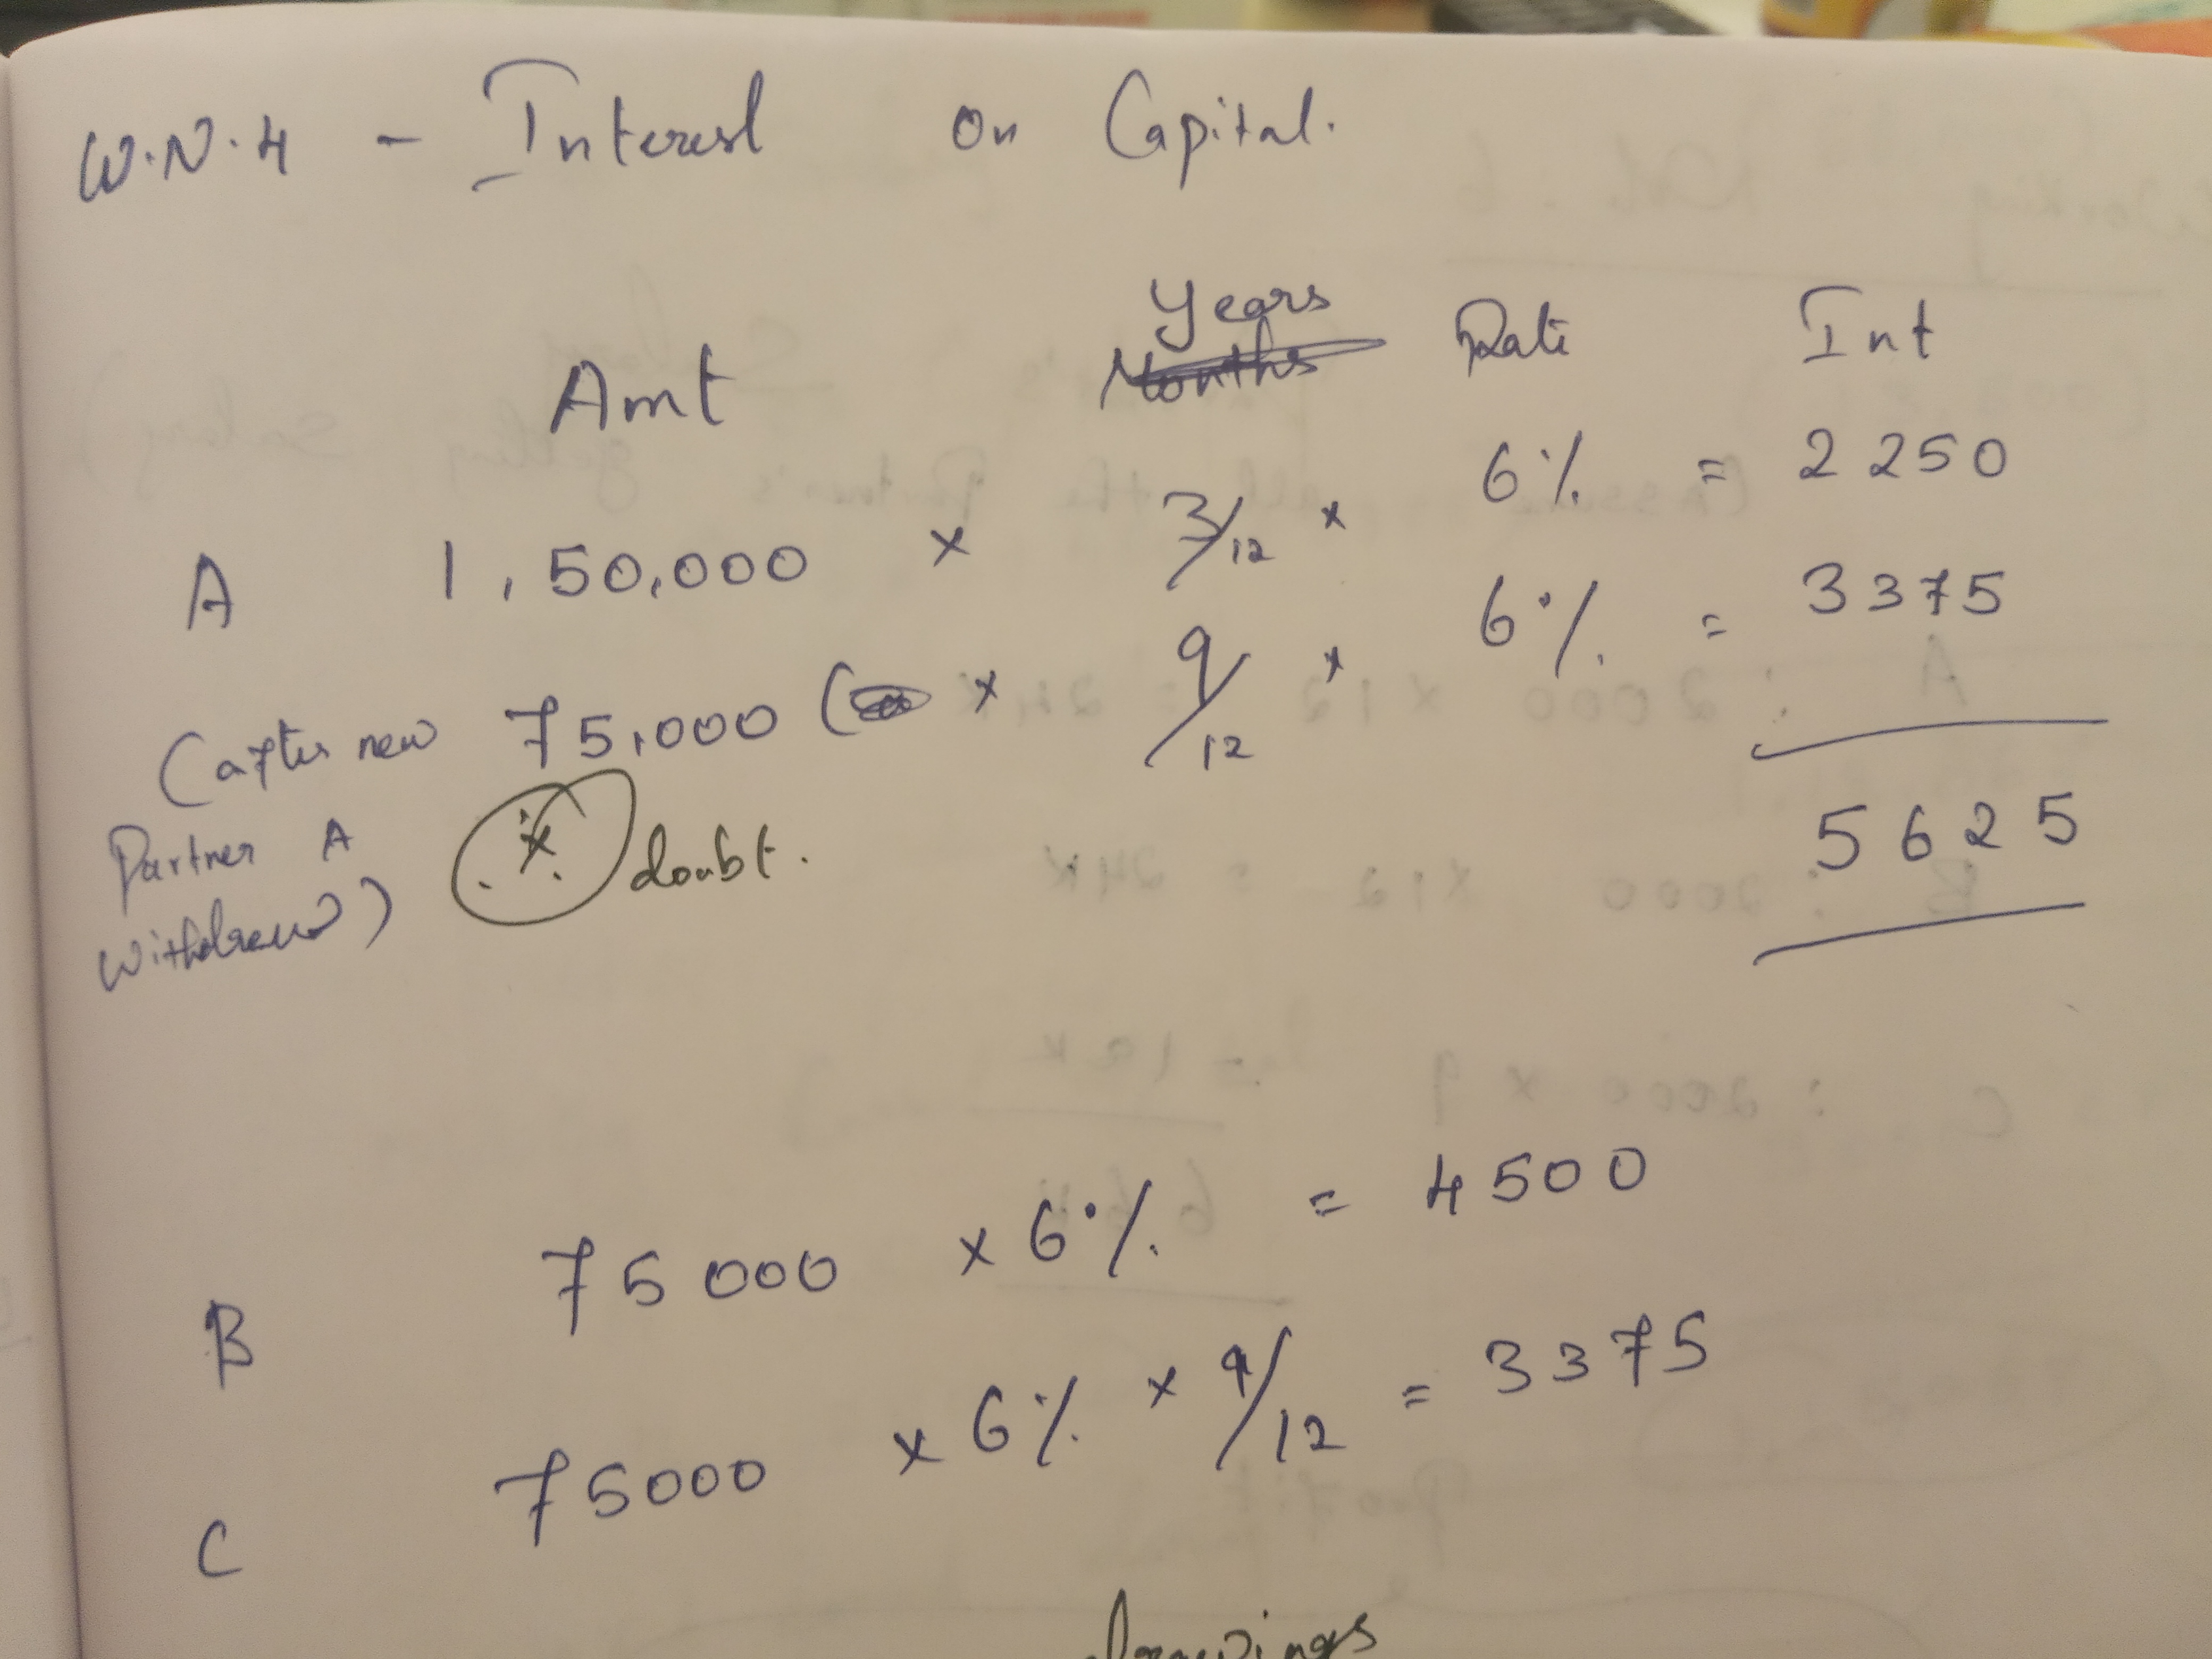 W.N.4 - Interest on Capital.
Amt Years Rate Int
A 1,50,000 × 3/12 × 6% = 2250
(after new 75,000 ( × 9/12 × 6% = 3375
Partner A
withdraws) doubt.
5625
B 75000 × 6% = 4500
C 75000 × 6% × 9/12 = 3375
drawings